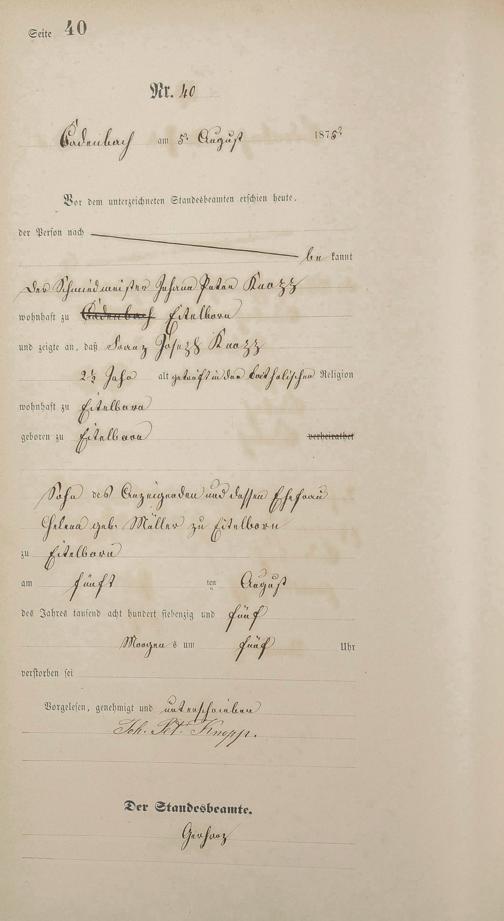 Seite 40
Nr. 40
Cadenbach am 5. August 1875
Vor dem unterzeichneten Standesbeamten erschien heute,
der Person nach
be kannt
der Schmiedmeister Johann Peter Knopp
wohnhaft zu Cadenbach Eitelborn
und zeigte an, daß Franz Joseph Knopp
2½ Jahr alt getauft in der katholischen Religion
wohnhaft zu Eitelborn
geboren zu Eitelborn verheirathet
Sohn des Anzeigenden und dessen Ehefrau
Helena geb. Müller zu Eitelborn
zu Eitelborn
am fünft ten August
des Jahres tausend acht hundert siebenzig und fünf
Morgen s um fünf Uhr
verstorben sei
Vorgelesen, genehmigt und unterschrieben
Joh. Pet. Knopp.
Der Standesbeamte.
Gerharz